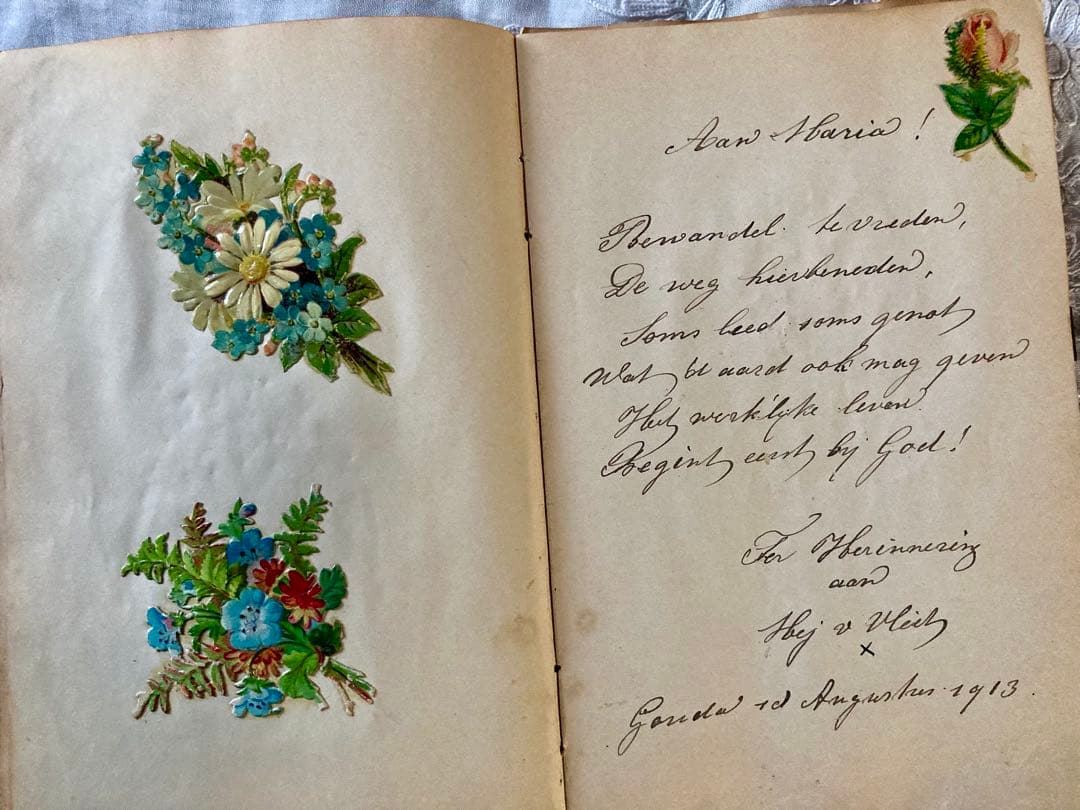 Aan Maria!
Bewandel tevreden,
De weg hierbeneden,
Soms leed soms genot
Wat de aard ook mag geven
Het werk'lijke leven
Begint eerst bij God!
Ter Herinnering
aan
v Vliet
x
Gouda Augustus 1913.